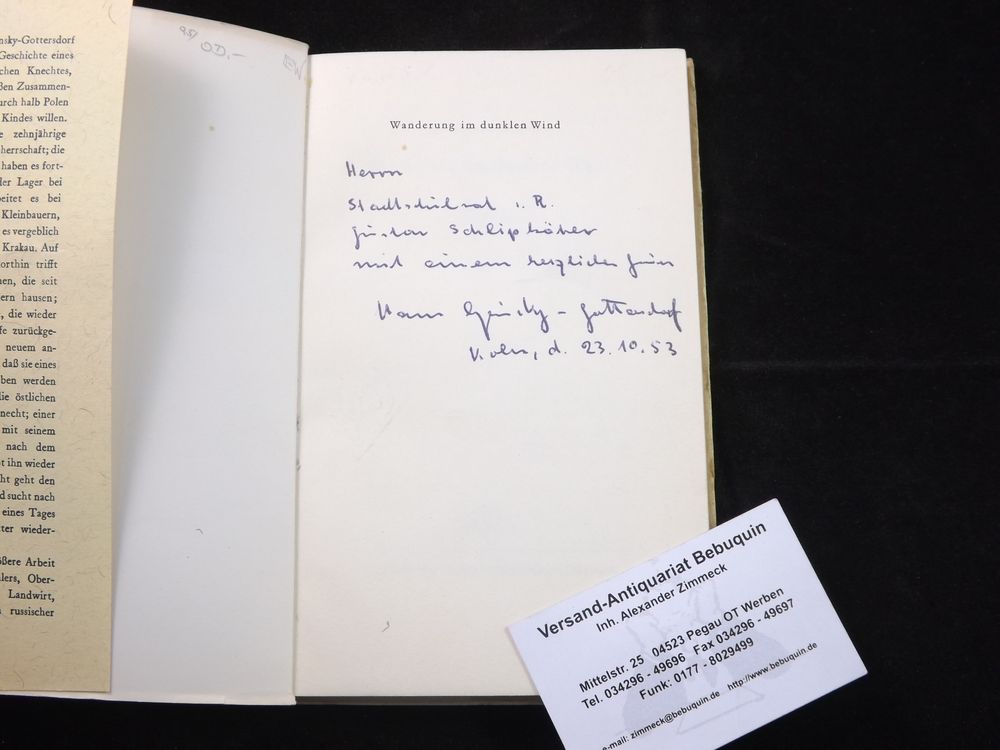 nsky-Gottersdorf
Geschichte eines
chen Knechtes,
ßen Zusammen-
urch halb Polen
Kindes willen.
e zehnjährige
herrschaft; die
haben es fort-
der Lager bei
beitet es bei
Kleinbauern,
es vergeblich
Krakau. Auf
orthin trifft
nen, die seit
ern hausen;
, die wieder
fe zurückge-
neuem an-
daß sie eines
ben werden
die östlichen
necht; einer
mit seinem
nach dem
t ihn wieder
ht geht den
d sucht nach
eines Tages
ter wieder-
ßere Arbeit
lers, Ober-
Landwirt,
russischer
OD.-
EW
Wanderung im dunklen Wind
Herrn
Stadtschulrat i. R.
Gustav Schlipköter
mit einem herzlichen Gruß
Hans Lipinsky-Gottersdorf
Köln, d. 23.10.53
Versand-Antiquariat Bebuquin
Inh. Alexander Zimmeck
Mittelstr. 25 04523 Pegau OT Werben
Tel. 034296 - 49696 Fax 034296 - 49697
Funk: 0177 - 8029499
e-mail: zimmeck@bebuquin.de http://www.bebuquin.de